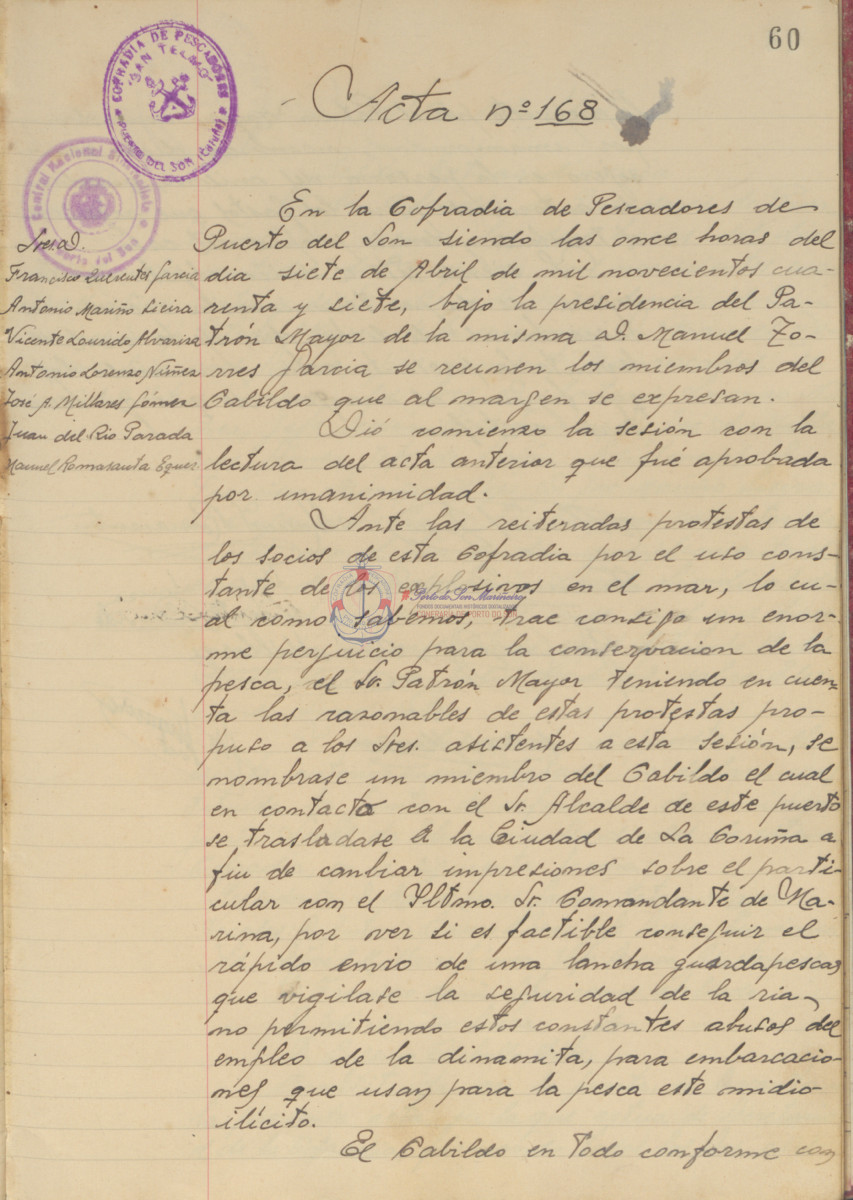 60
COFRADIA DE PESCADORES
"SAN TELMO"
PUERTO DEL SON (Coruña)
Acta nº 168
Central Nacional Sindicalista
Puerto del Son
Sres. D.
Francisco Lucientes Garcia
Antonio Mariño Sieira
Vicente Lourido Alvariza
Antonio Lorenzo Núñez
José A. Millares Gómez
Juan del Rio Parada
Manuel Romasanta
En la Cofradia de Pescadores de
Puerto del Son siendo las once horas del
dia siete de Abril de mil novecientos cua-
renta y siete, bajo la presidencia del Pa-
trón Mayor de la misma D. Manuel To-
rres Garcia se reunen los miembros del
Cabildo que al margen se expresan.
Dió comienzo la sesión con la
lectura del acta anterior que fué aprobada
por unanimidad.
Ante las reiteradas protestas de
los socios de esta Cofradia por el uso cons-
tante de los explosivos en el mar, lo cu-
al como sabemos, trae consigo un enor-
me perjuicio para la conservacion de la
pesca, el Sr. Patrón Mayor teniendo en cuen-
ta las razonables de estas protestas pro-
puso a los Sres. asistentes a esta sesión, se
nombrase un miembro del Cabildo el cual
en contacto con el Sr. Alcalde de este puerto
se trasladase a la Ciudad de La Coruña a
fin de canbiar impresiones sobre el parti-
cular con el Yltmo. Sr. Comandante de Ma-
rina, por ver si es factible conseguir el
rápido envio de una lancha guardapescas
que vigilase la seguridad de la ria
no permitiendo estos constantes abusos del
empleo de la dinamita, para embarcacio-
nes que usan para la pesca este midio
ilícito.
El Cabildo en todo conforme con
Porto do Son Marineiro